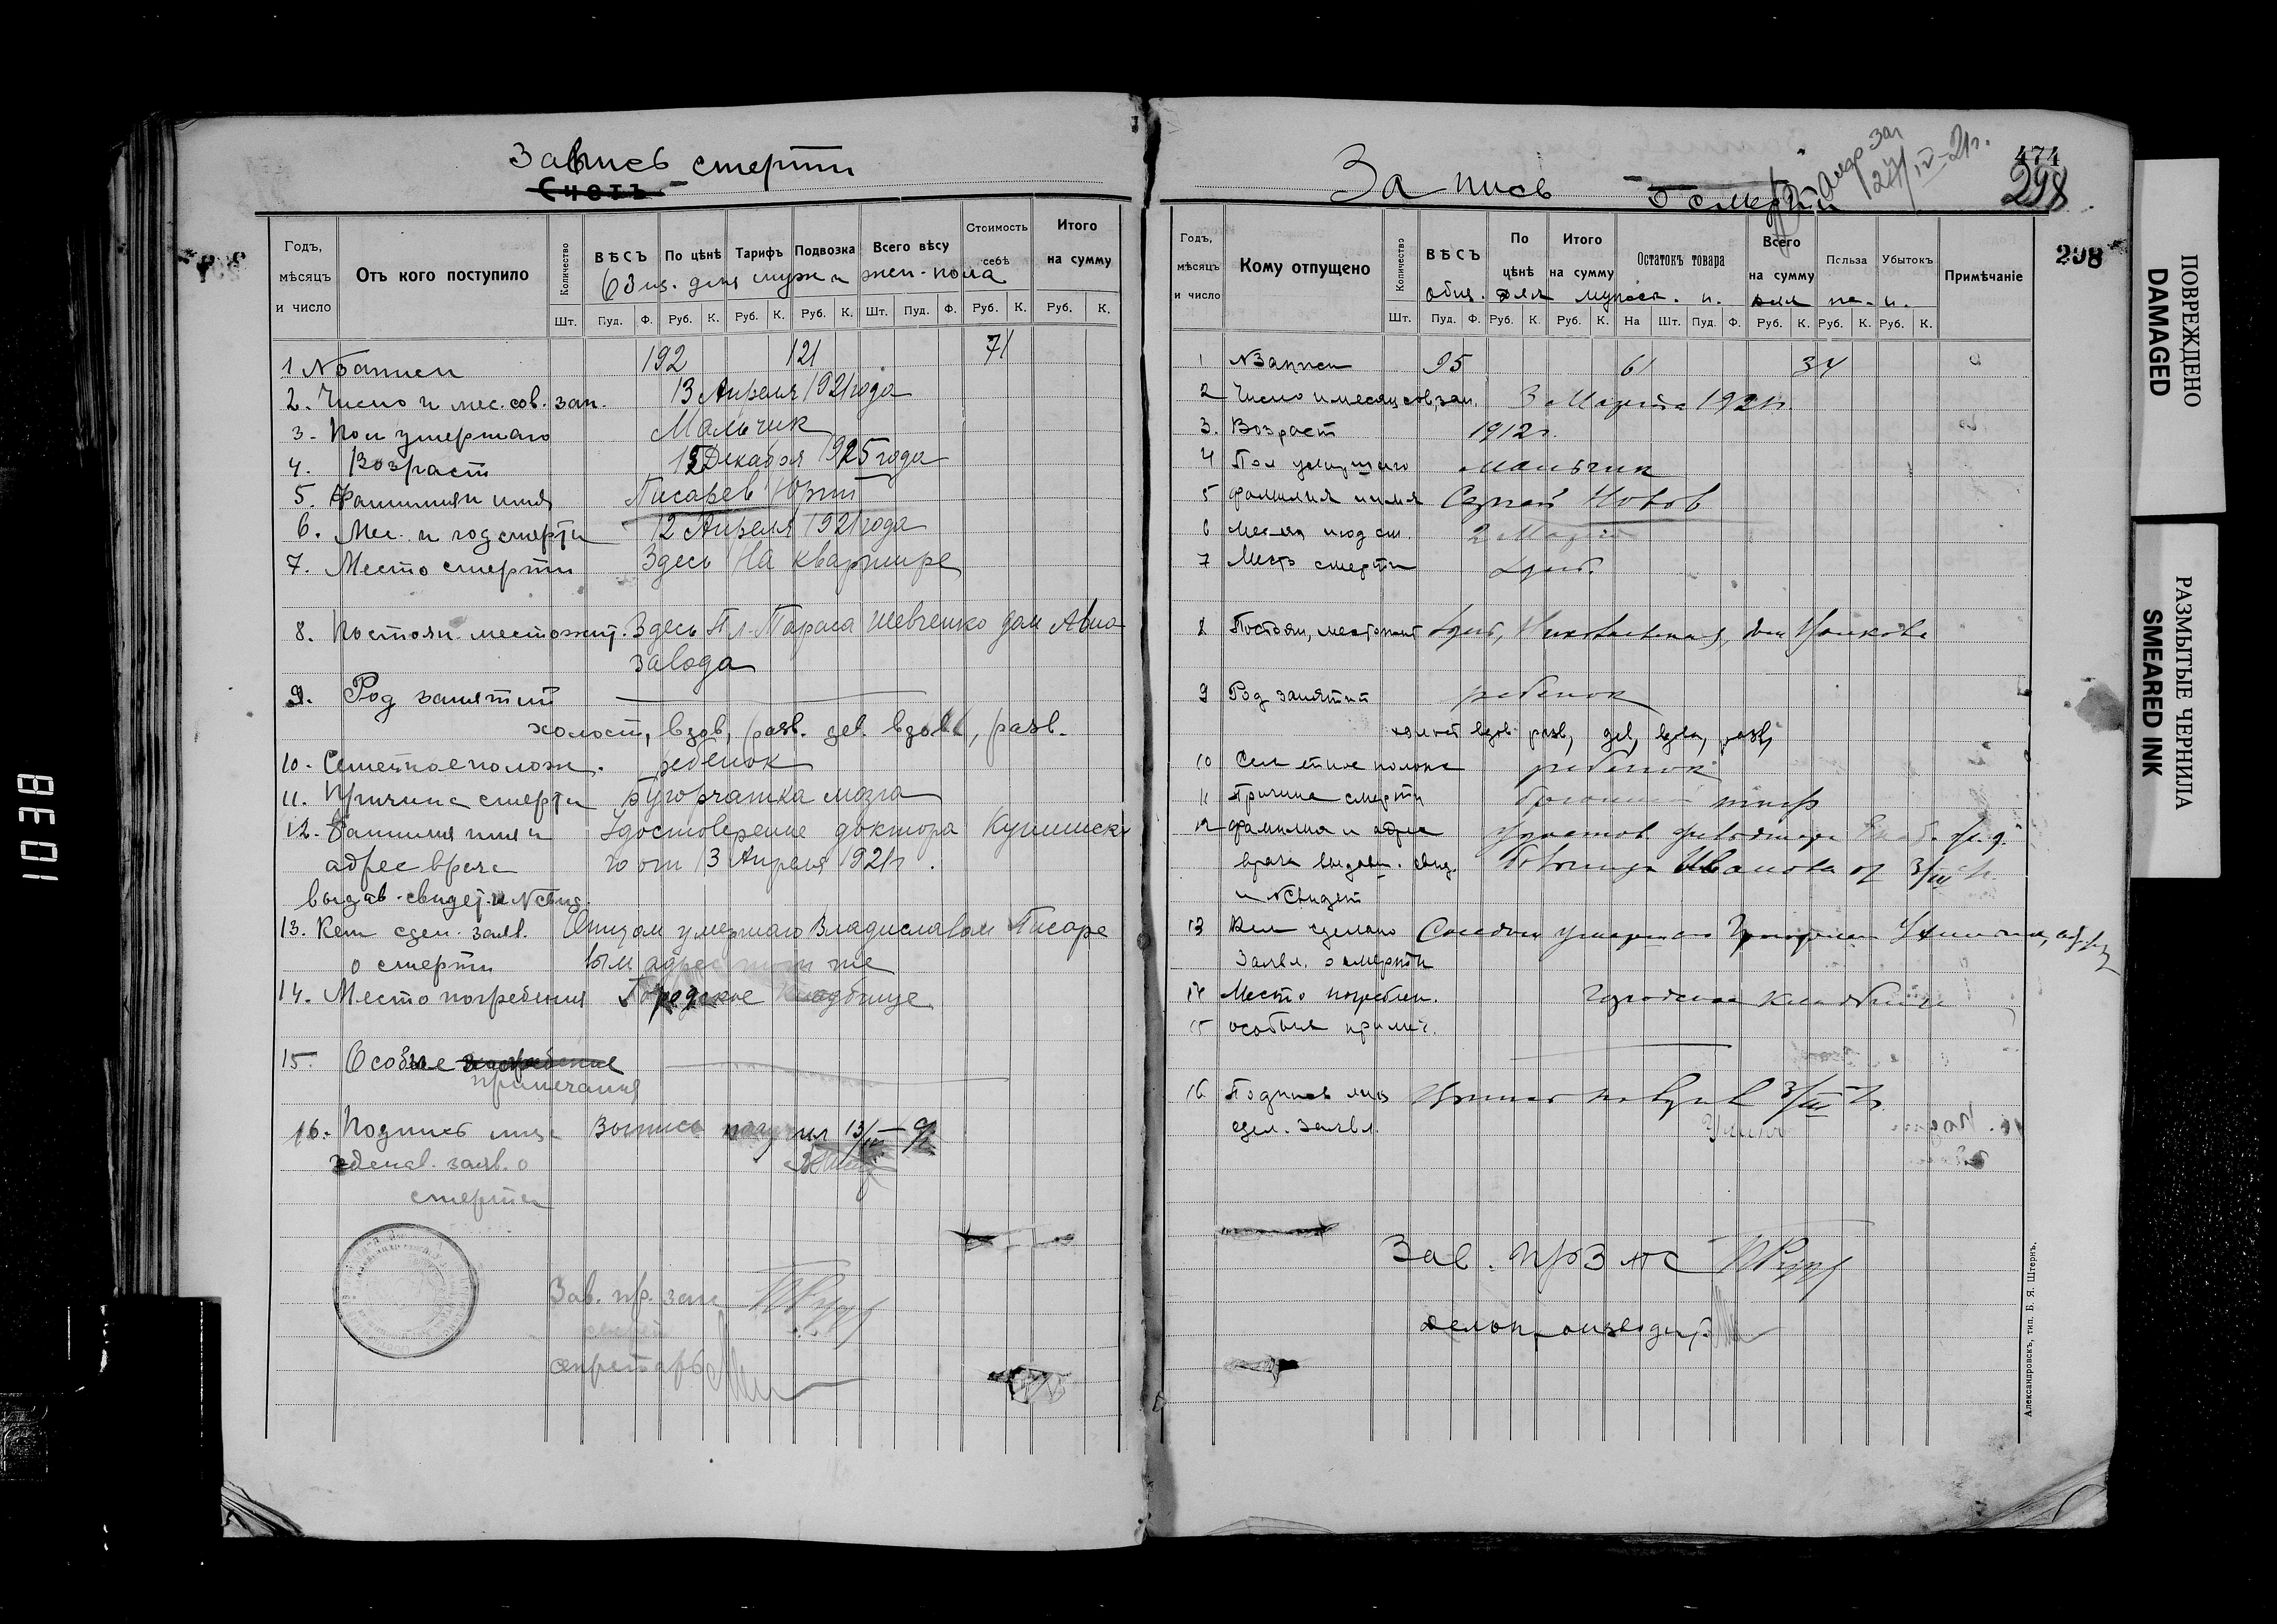 Запись смерти
Счетъ
Годъ, мѣсяцъ и число
Отъ кого поступило
Количество
ВѢСЪ
По цѣнѣ
Тарифъ
Подвозка
Всего вѣсу
Стоимость себѣ
Итого на сумму
общ. для муж и жен. пола
Шт. Пуд. Ф. Руб. К. Руб. К. Руб. К. Шт. Пуд. Ф. Руб. К. Руб. К.
1 № записи 192 121 71
2. Число и мес. сов. зап. 13 Апреля 1921 года
3. Пол умершаго Мальчик
4. Возраст Декабря года
5. Фамилия и имя Писарев Юрий
6. Мес. и год смерти 12 Апреля 1921 года
7. Место смерти Здесь На квартире
8. Постоян. местожит. Здесь Пл. Тараса Шевченко дом Авиа
завода
9. Род занятий
холост, вдов, разв. дев. вдова, разв.
10. Семейное полож. ребенок
11. Причина смерти бугорчатка мозга
12. Фамилия имя и Удостоверение доктора
адрес врача го от 13 Апреля 1921 г.
выдав. свидет. и № свид.
13. Кем сдел. заяв. Отцом умершаго Владиславом Писаре
о смерти вым адрес тот же
14. Место погребения Городское Кладбище
15. Особые
примечания
16. Подпись лица Выпись получил 13/IV
сделав. заяв. о
смерти
Зав. пр. зап.
секретарь
Запись о смерти
24/IV-21г.
474
298
298
Годъ, мѣсяцъ и число
Кому отпущено
Количество
ВѢСЪ
По цѣнѣ
Итого на сумму
Остатокъ товара
Всего на сумму
Польза
Убытокъ
Примѣчаніе
общ. для мужск. п. для же. п.
Шт. Пуд. Ф. Руб. К. Руб. К. На Шт. Пуд. Ф. Руб. К. Руб. К. Руб. К.
1 № Записи 95 61 34
2 Число и месяц сов. зап. 3 Марта 1921 г.
3. Возраст 1912 г.
4 Пол умершего мальчик
5 Фамилия и имя Сергей Котов
6 Месяц и год см. 2 Марта
7 Место смерти здесь
8 Постоян. местожит здесь,
9 Род занятий ребенок
холост вдов. разв, дев, вдова, разв,
10 Семейное полож ребенок
11 Причина смерти тиф
12 Фамилия и адрес
врача выдавш. свид. больницы Иванова от 3/III
и № свидет
13 Кем сделано Соседом умершаго
Заявл. о смерти
14 Место погребен. городское кладбище
15 Особыя примеч.
16 Подпись лица 3/III
сдел. заявл.
Зав. пр З
делопроизводит
Александровскъ, тип. Б. Я. Штернъ.
ПОВРЕЖДЕНО
DAMAGED
РАЗМЫТЫЕ ЧЕРНИЛА
SMEARED INK
1038